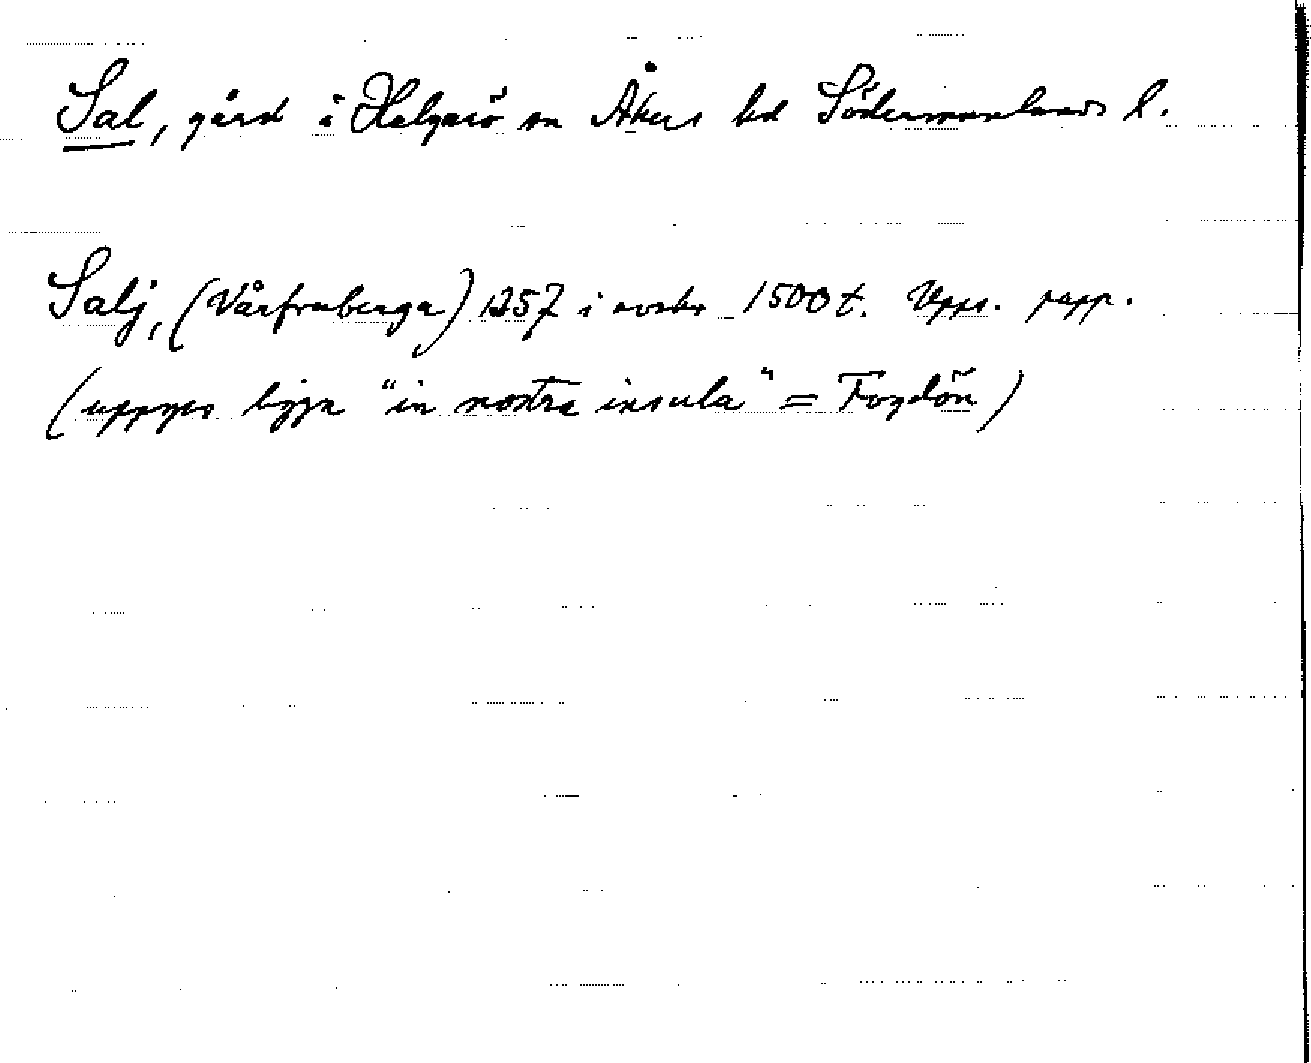 Sal, gård i Helgarö sn Åkers hd Södermanlands l.
Salj, (Vårfruberga) 1257 i avskr 1500 t. Upps. papp.
(uppges ligga "in nostra insula" = Fogdön)